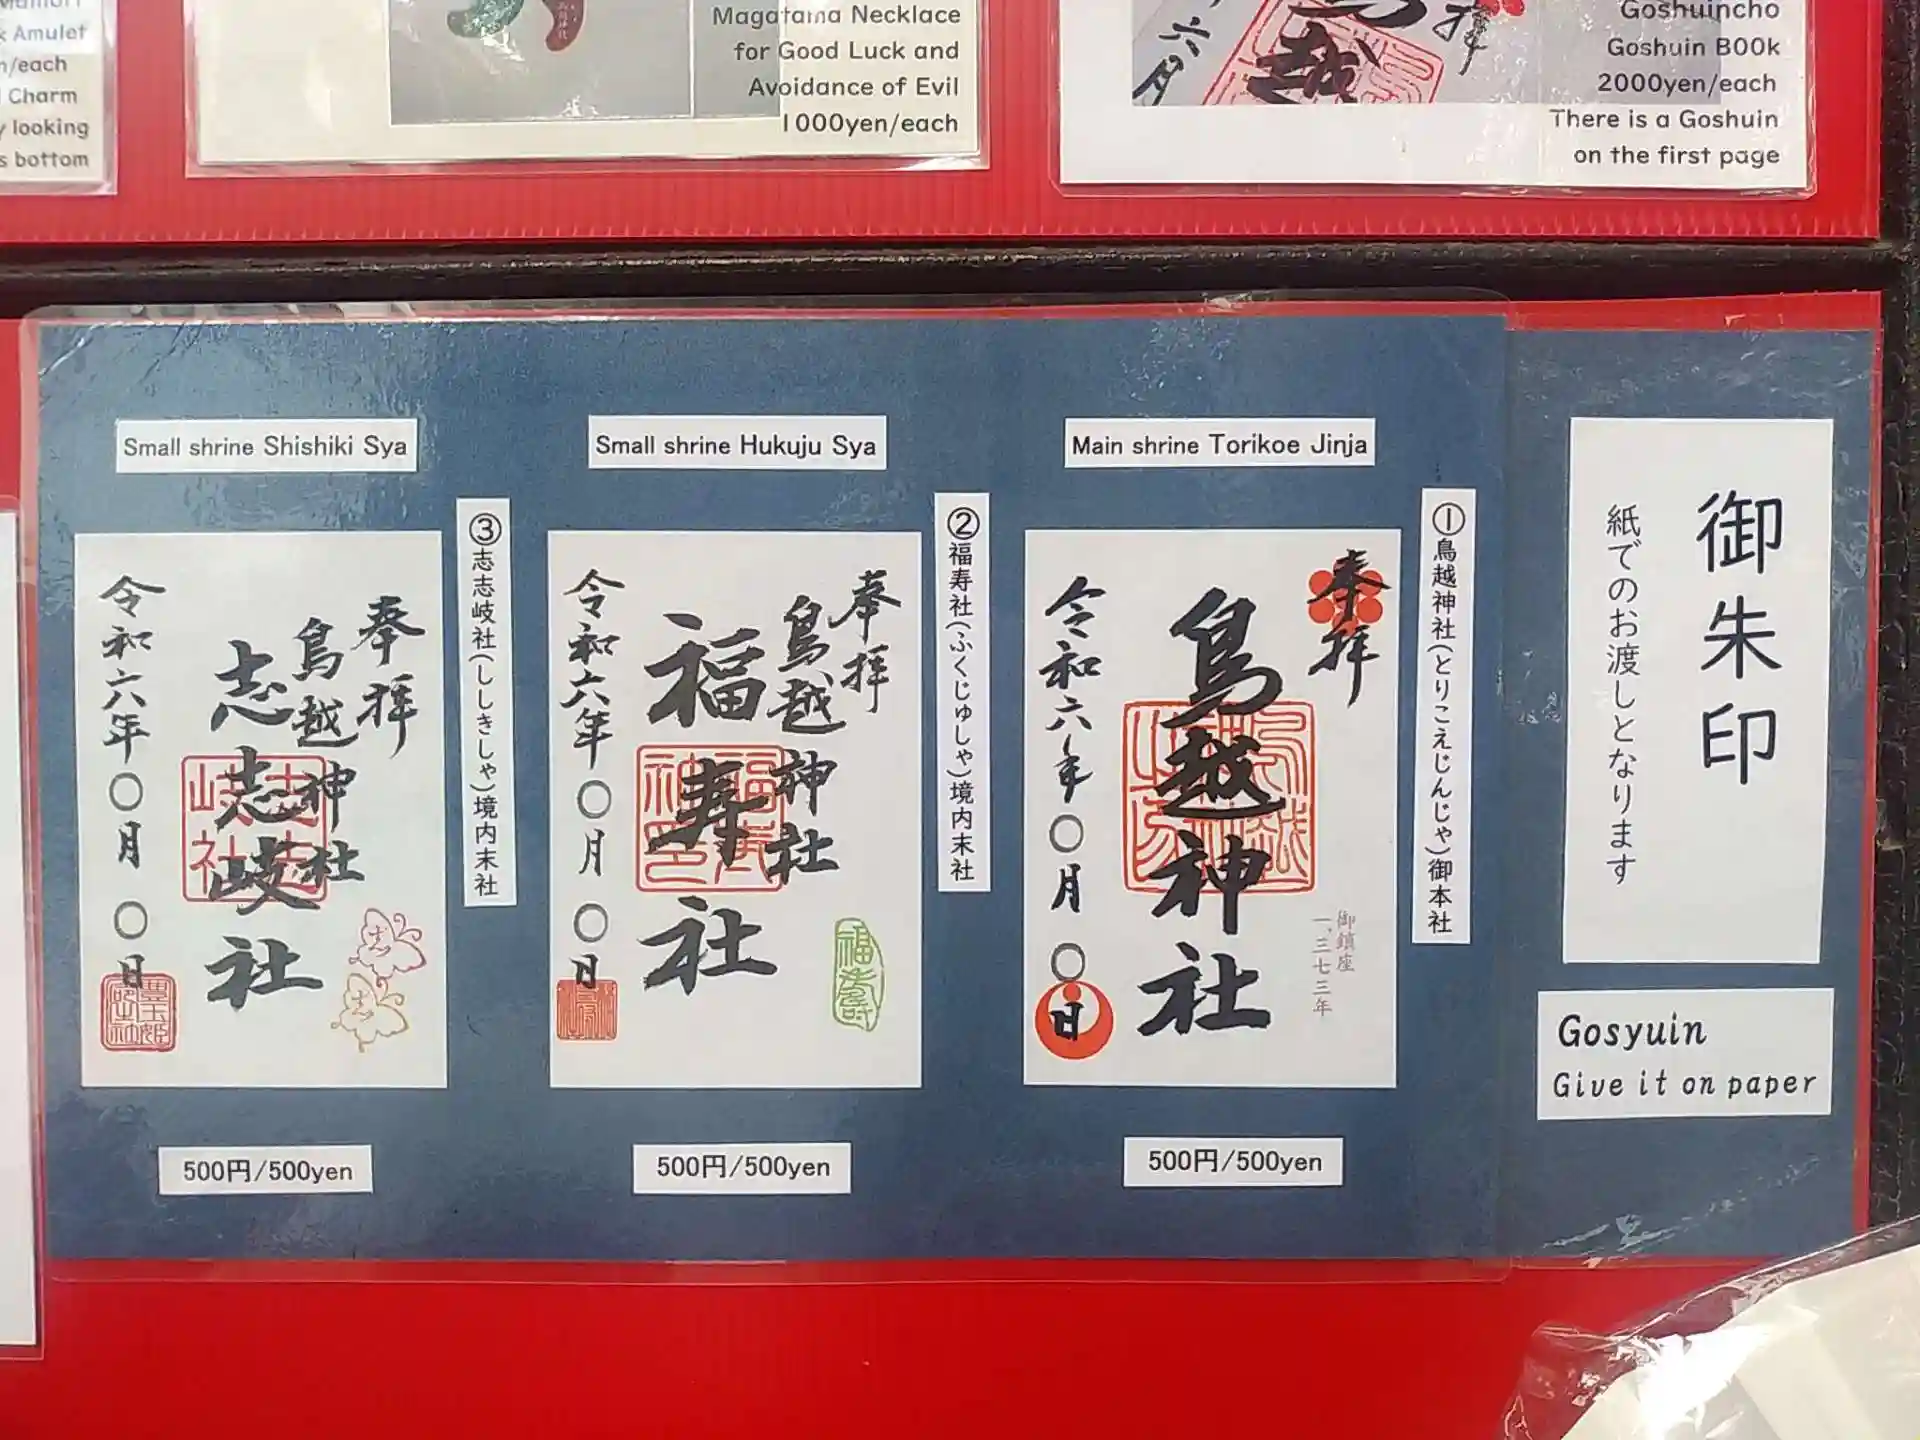 k Amulet
n/each
Charm
looking
s bottom
Magatama Necklace
for Good Luck and
Avoidance of Evil
1000yen/each
六月
越
拝
Goshuincho
Goshuin B00k
2000yen/each
There is a Goshuin
on the first page
御朱印
紙でのお渡しとなります
Gosyuin
Give it on paper
Main shrine Torikoe Jinja
①鳥越神社(とりこえじんじゃ)御本社
奉拝
鳥越神社
御鎮座
一、三七三年
令和六年〇月〇日
500円/500yen
Small shrine Hukuju Sya
②福寿社(ふくじゅしゃ)境内末社
奉拝
鳥越神社
福寿社
福寿
令和六年〇月〇日
500円/500yen
Small shrine Shishiki Sya
③志志岐社(ししきしゃ)境内末社
奉拝
鳥越神社
志志岐社
志
志
令和六年〇月〇日
500円/500yen